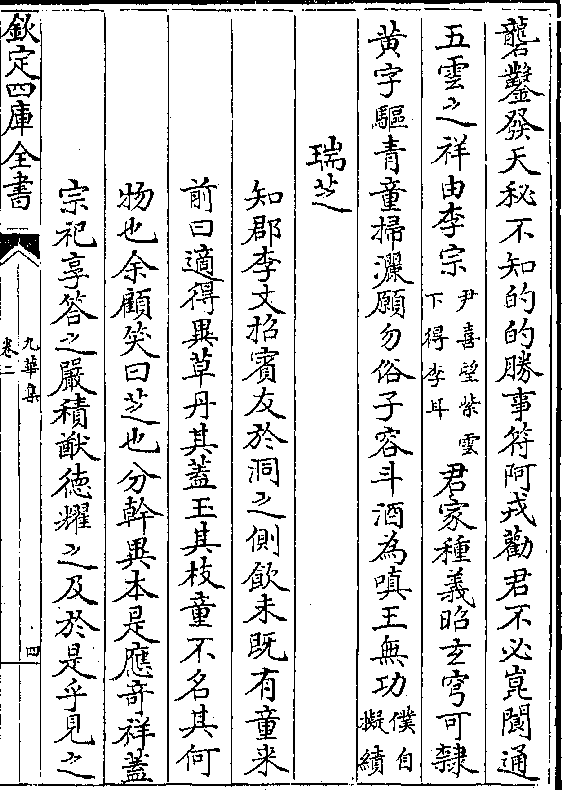 礱鑿發天秘不知的的勝事符阿戎勸君不必嵬閬通
五雲之祥由李宗尹喜望紫雲下得李耳君家種義昭玄穹可隸
黄字驅青童掃灑願勿俗子容斗酒為嗔王無功僕自擬績
瑞芝
知郡李文招賓友於洞之側飲未既有童来
前曰適得異草丹其蓋玉其枝童不名其何
物也余顧笑曰芝也分幹異本是應奇祥蓋
宗祀享答之嚴積猷徳耀之及於是乎見之
欽定四庫全書
九華集
卷二
四